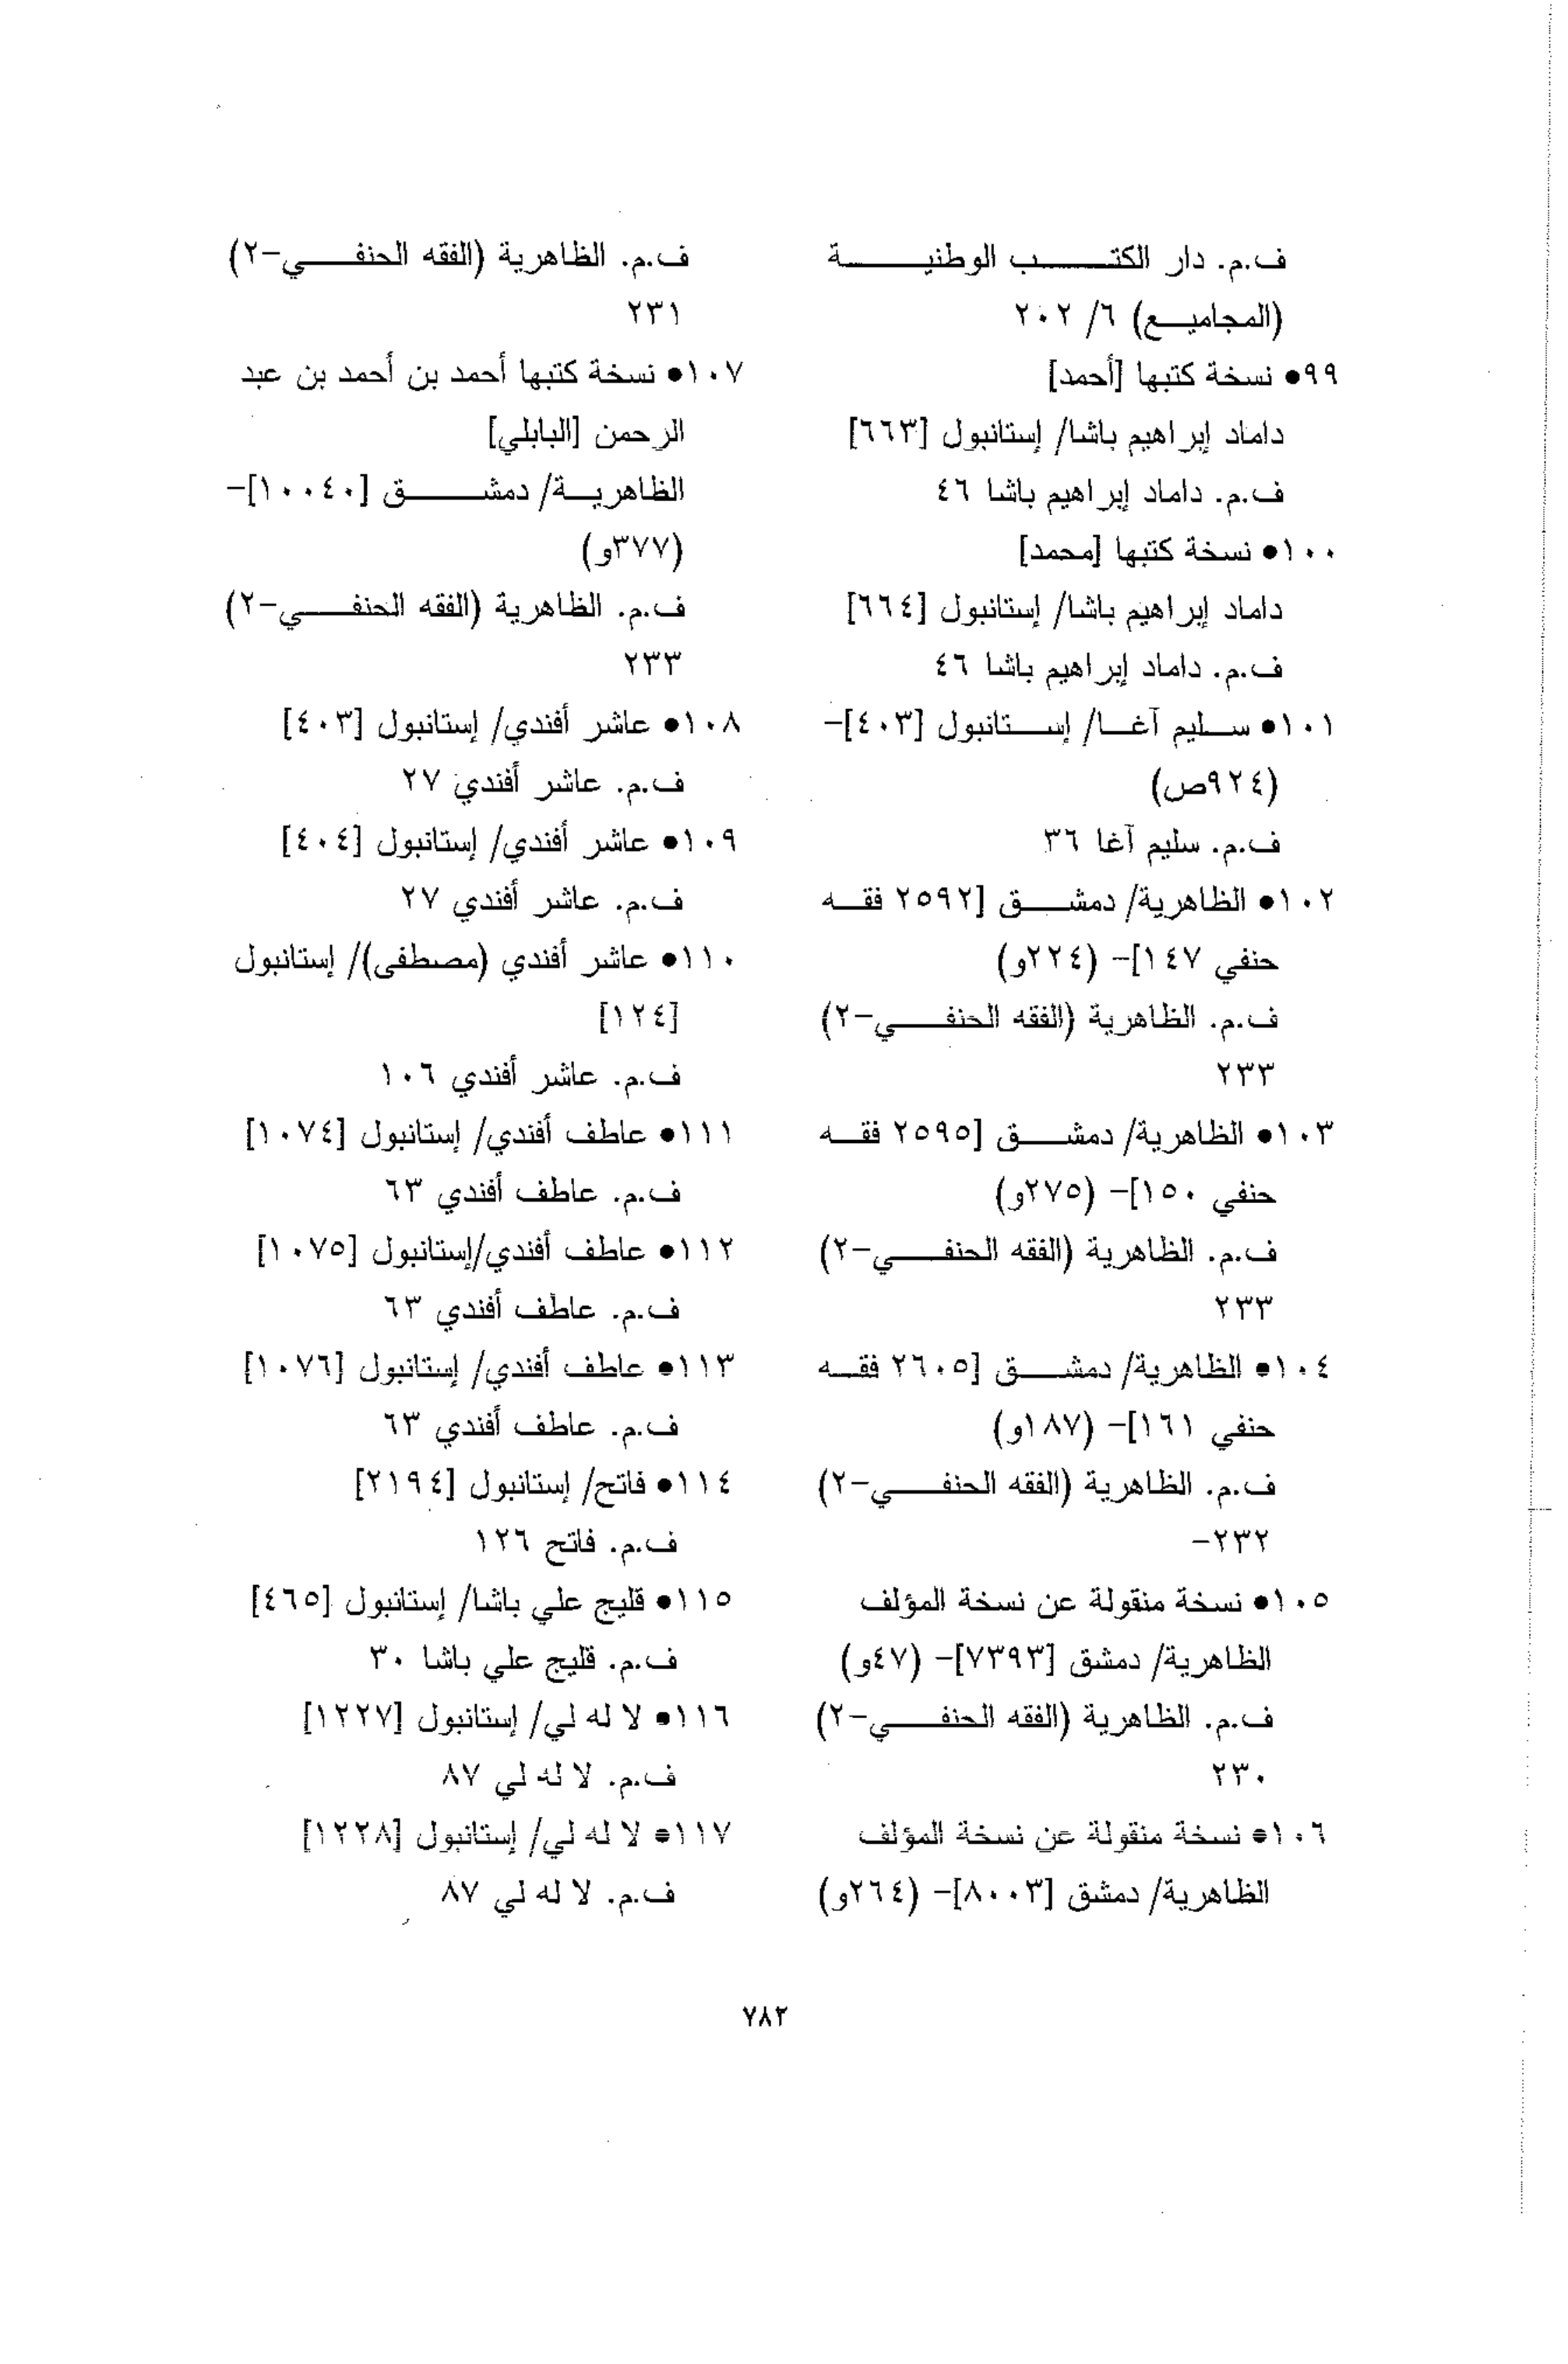 ف.م. دار الكتب الوطنية
(المجاميع) ٦/ ٢٠٢
٩٩● نسخة كتبها [أحمد]
داماد إبراهيم باشا/ إستانبول [٦٦٣]
ف.م. داماد إبراهيم باشا ٤٦
١٠٠● نسخة كتبها [محمد]
داماد إبراهيم باشا/ إستانبول [٦٦٤]
ف.م. داماد إبراهيم باشا ٤٦
١٠١● سليم آغا/ إستانبول [٤٠٣]-
(٩٢٤ص)
ف.م. سليم آغا ٣٦
١٠٢● الظاهرية/ دمشق [٢٥٩٢ فقه
حنفي ١٤٧]- (٢٢٤و)
ف.م. الظاهرية (الفقه الحنفي-٢)
٢٣٣
١٠٣● الظاهرية/ دمشق [٢٥٩٥ فقه
حنفي ١٥٠]- (٢٧٥و)
ف.م. الظاهرية (الفقه الحنفي-٢)
٢٣٣
١٠٤● الظاهرية/ دمشق [٢٦٠٥ فقه
حنفي ١٦١]- (١٨٧و)
ف.م. الظاهرية (الفقه الحنفي-٢)
٢٣٢-
١٠٥● نسخة منقولة عن نسخة المؤلف
الظاهرية/ دمشق [٧٣٩٣]- (٤٧و)
ف.م. الظاهرية (الفقه الحنفي-٢)
٢٣٠
١٠٦● نسخة منقولة عن نسخة المؤلف
الظاهرية/ دمشق [٨٠٠٣]- (٢٦٤و)
ف.م. الظاهرية (الفقه الحنفي-٢)
٢٣١
١٠٧● نسخة كتبها أحمد بن أحمد بن عبد
الرحمن [البابلي]
الظاهرية/ دمشق [١٠٠٤٠]-
(٣٧٧و)
ف.م. الظاهرية (الفقه الحنفي-٢)
٢٣٣
١٠٨● عاشر أفندي/ إستانبول [٤٠٣]
ف.م. عاشر أفندي ٢٧
١٠٩● عاشر أفندي/ إستانبول [٤٠٤]
ف.م. عاشر أفندي ٢٧
١١٠● عاشر أفندي (مصطفى)/ إستانبول
[١٢٤]
ف.م. عاشر أفندي ١٠٦
١١١● عاطف أفندي/ إستانبول [١٠٧٤]
ف.م. عاطف أفندي ٦٣
١١٢● عاطف أفندي/إستانبول [١٠٧٥]
ف.م. عاطف أفندي ٦٣
١١٣● عاطف أفندي/ إستانبول [١٠٧٦]
ف.م. عاطف أفندي ٦٣
١١٤● فاتح/ إستانبول [٢١٩٤]
ف.م. فاتح ١٢٦
١١٥● قليج علي باشا/ إستانبول [٤٦٥]
ف.م. قليج علي باشا ٣٠
١١٦● لا له لي/ إستانبول [١٢٢٧]
ف.م. لا له لي ٨٧
١١٧● لا له لي/ إستانبول [١٢٢٨]
ف.م. لا له لي ٨٧
٧٨٢